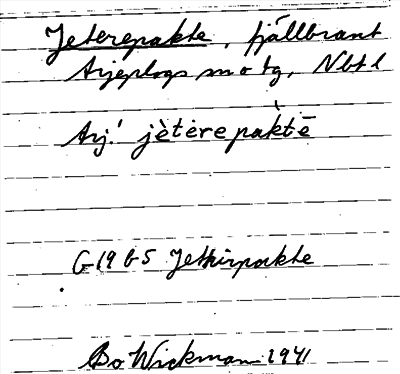 Jeterepakte, fjällbrant
Arjeplogs sn o tg, Nbtl
Arj! jètėrepàktē
G 1965 Jetturpakte
Bo Wickman 1941